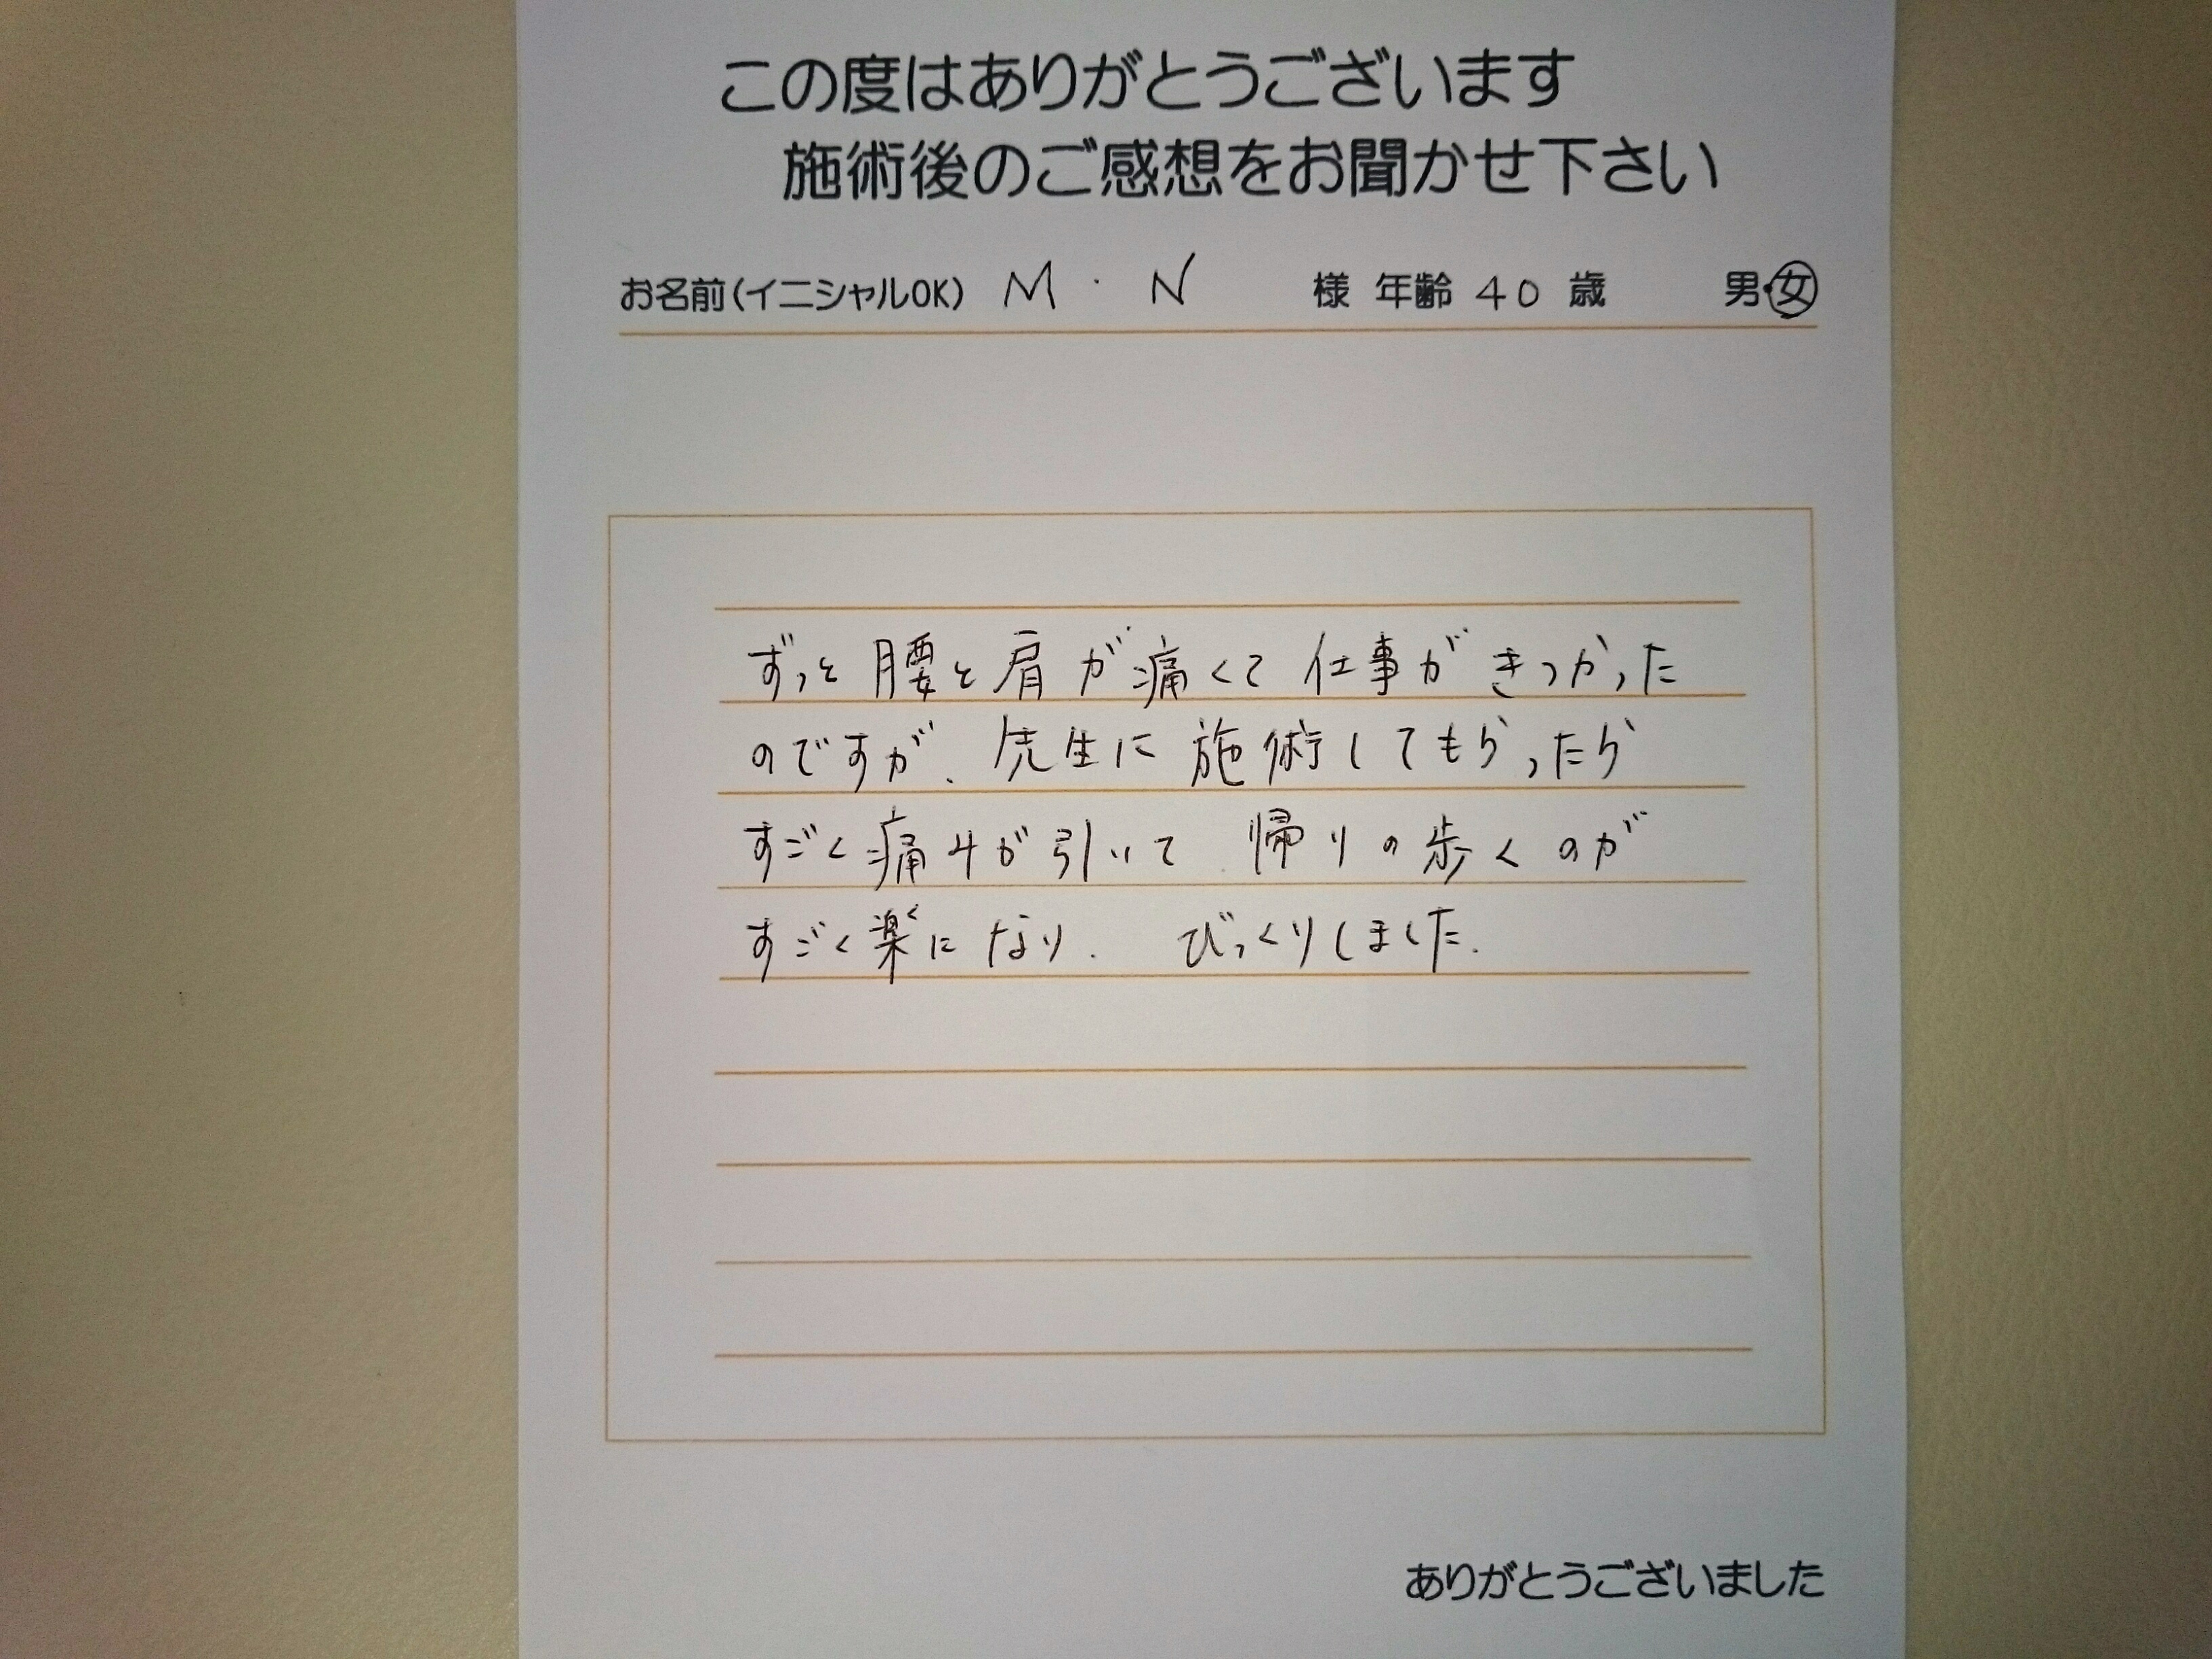 この度はありがとうございます
施術後のご感想をお聞かせ下さい
お名前(イニシャルOK) M・N 様 年齢 40 歳 男・女
ずっと腰と肩が痛くて仕事がきつかった
のですが、先生に施術してもらったら
すごく痛みが引いて、帰りの歩くのが
すごく楽になり、びっくりしました。
ありがとうございました